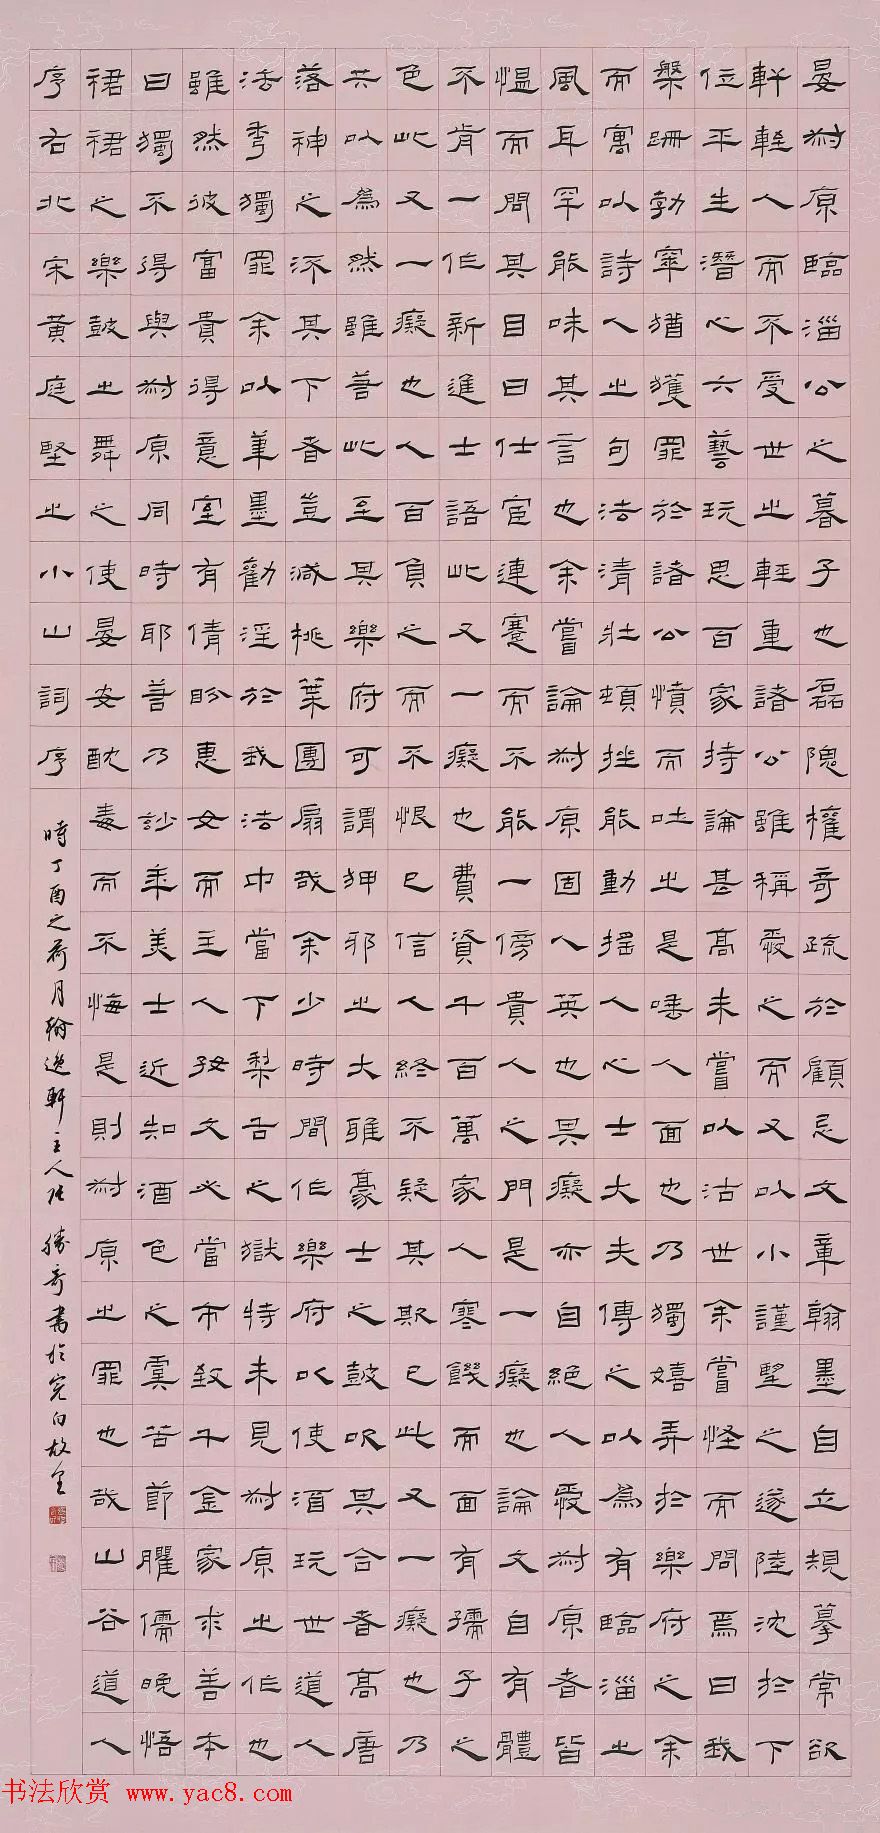 晏叔原臨淄公之暮子也磊隗權奇疏於顧忌文章翰墨自立規摹常欲
軒輊人而不受世之輕重諸公雖稱愛之而又以小謹望之遂陸沈於下
位平生潛心六藝玩思百家持論甚高未嘗以沽世余嘗怪而問焉曰我
槃跚勃窣猶獲罪於諸公憤而吐之是唾人面也乃獨嬉弄於樂府之余
而寓以詩人之句法清壯頓挫能動搖人心士大夫傳之以為有臨淄之
風耳罕能味其言也余嘗論叔原固人英也其癡亦自絕人愛叔原者皆
慍而問其目曰仕宦連蹇而不能一傍貴人之門是一癡也論文自有體
不肯一作新進士語此又一癡也費資千百萬家人寒饑而面有孺子之
色此又一癡也人百負之而不恨己信人終不疑其欺己此又一癡也乃
共以為然雖若此至其樂府可謂狎邪之大雅豪士之鼓吹其合者高唐
落神之流其下者豈減桃葉團扇哉余少時間作樂府以使酒玩世道人
法秀獨罪余以筆墨勸淫於我法中當下梨舌之獄特未見叔原之作也
雖然彼富貴得意室有倩盼惠女而主人好文必當市致千金家求善本
曰獨不得與叔原同時耶若乃妙年美士近知酒色之虞苦節臞儒晚悟
裙裙之樂鼓之舞之使晏安酖毒而不悔是則叔原之罪也哉山谷道人
序右北宋黃庭堅之小山詞序
時丁酉之荷月翰逸軒主人張勝奇書於
书法欣赏 www.yac8.com